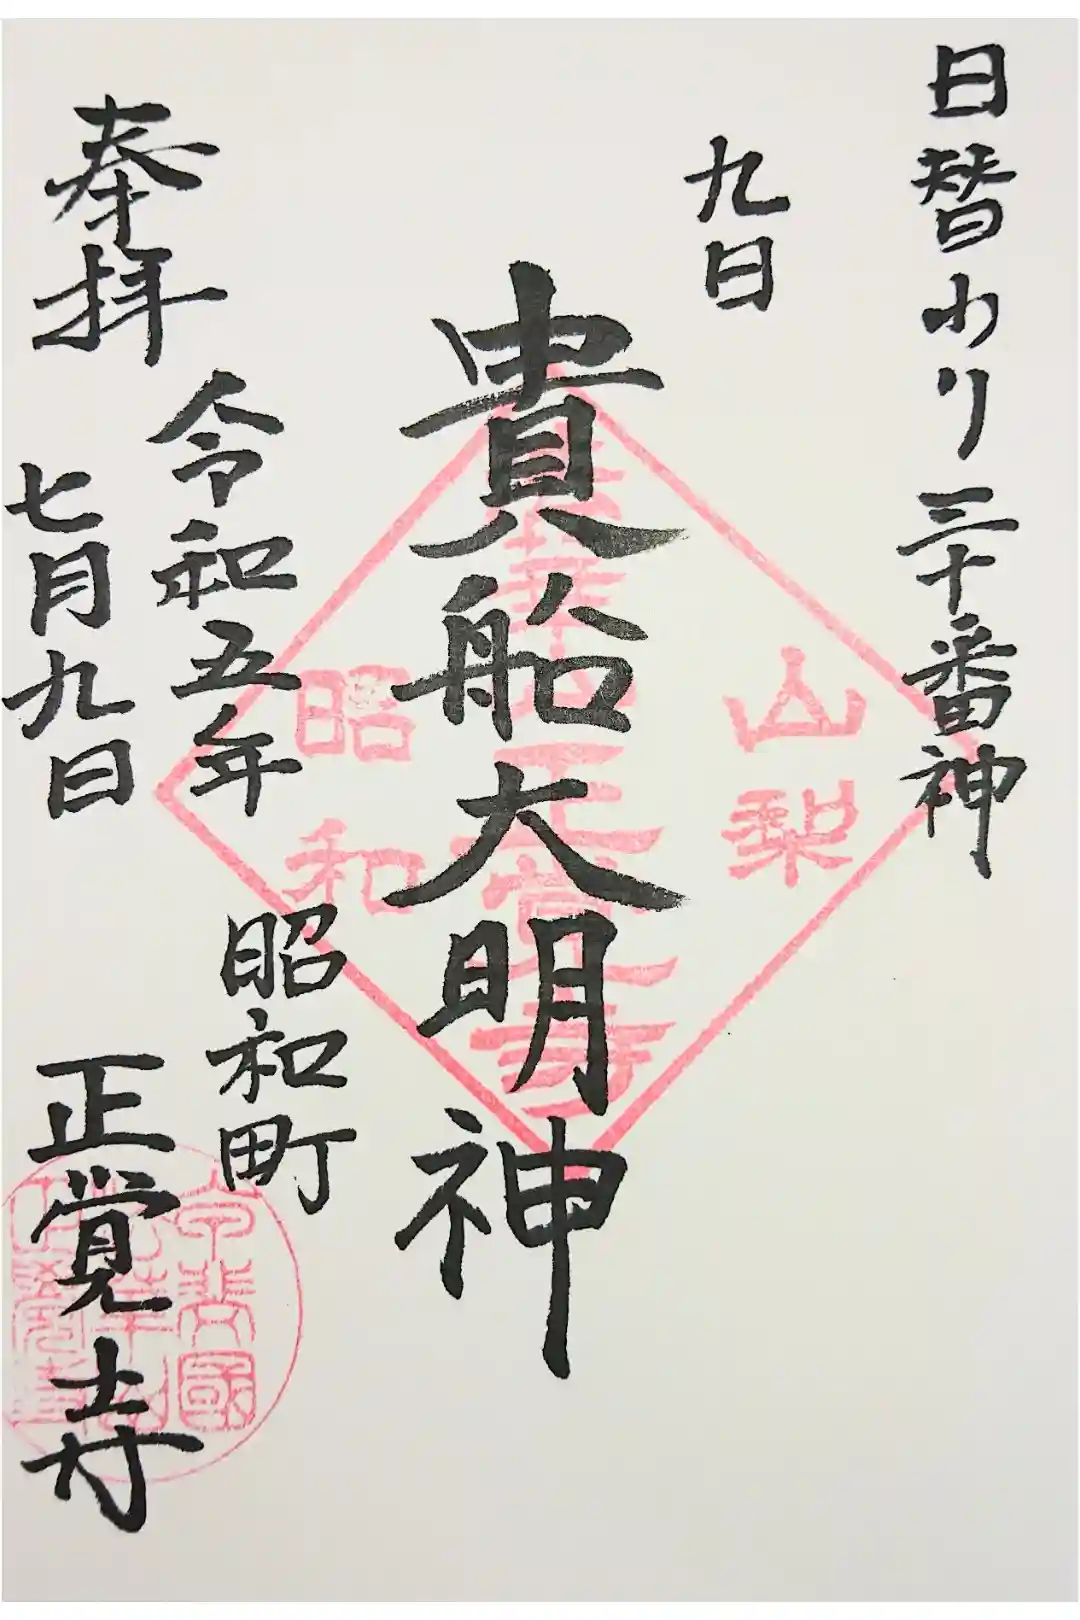 日替わり三十番神
九日
貴船大明神
奉拝
令和五年
七月九日
昭和町
正覚寺
山梨
昭和
正覚寺